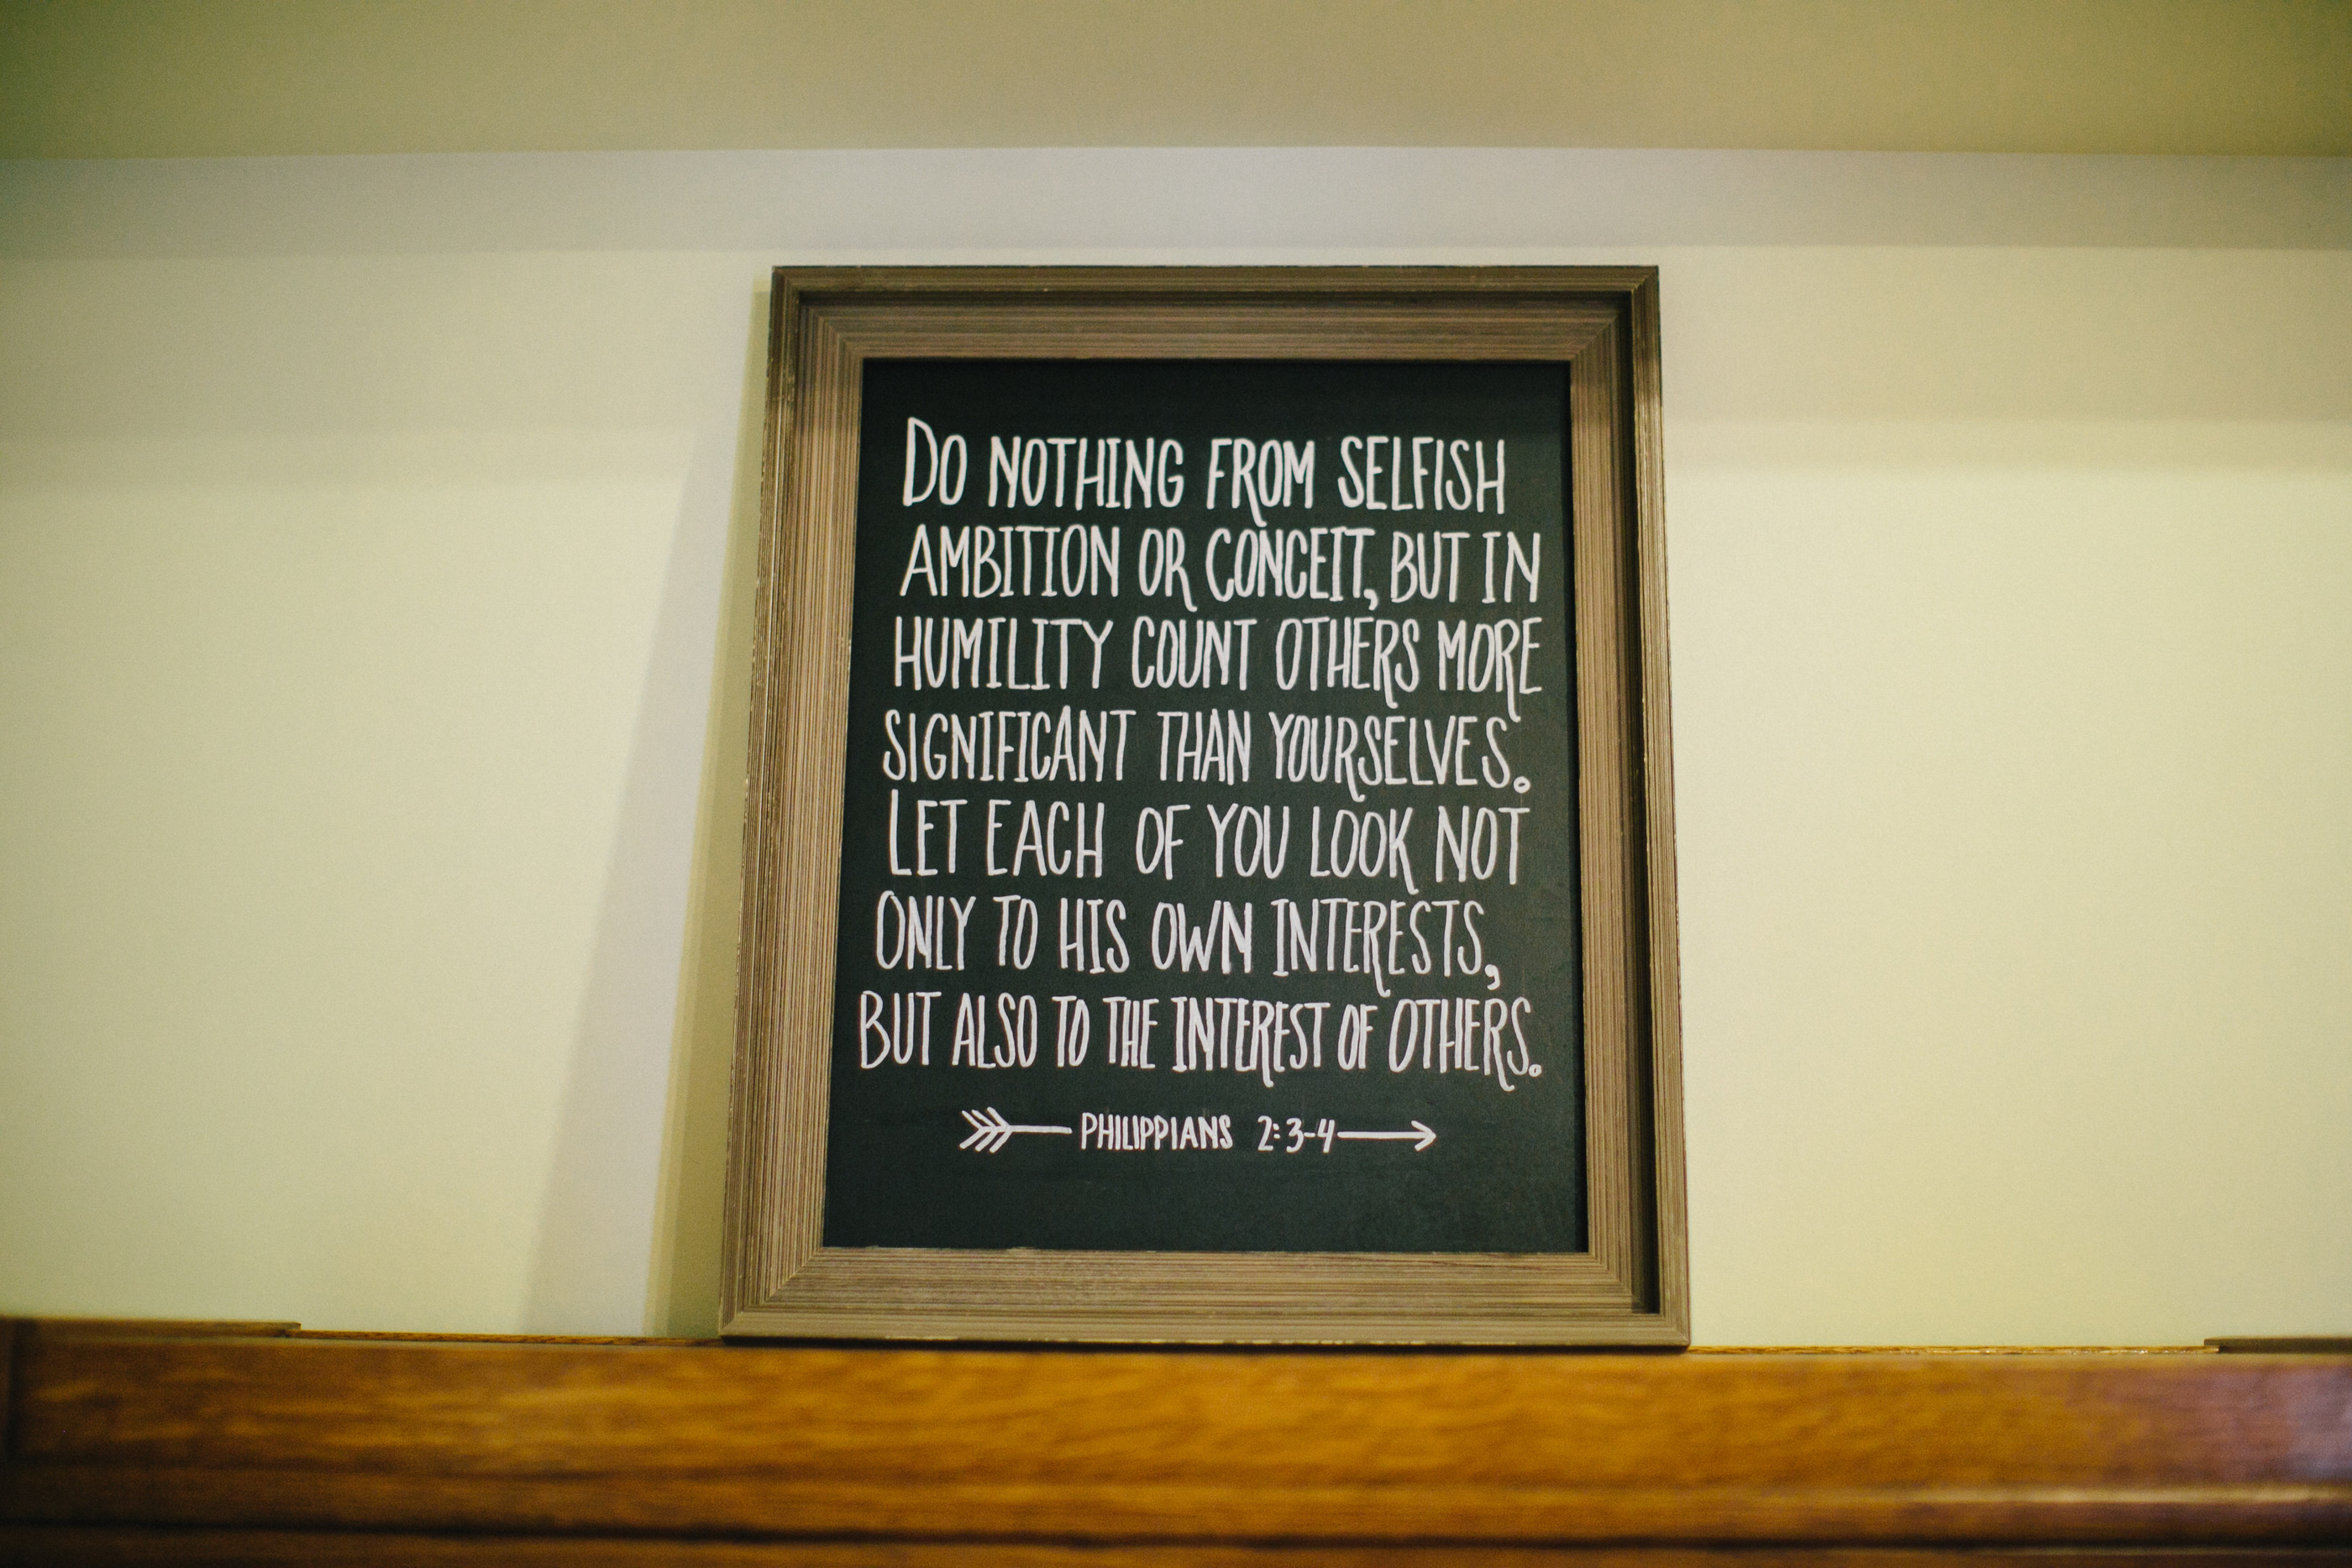 DO NOTHING FROM SELFISH
AMBITION OR CONCEIT, BUT IN
HUMILITY COUNT OTHERS MORE
SIGNIFICANT THAN YOURSELVES.
LET EACH OF YOU LOOK NOT
ONLY TO HIS OWN INTERESTS,
BUT ALSO TO THE INTEREST OF OTHERS.
PHILIPPIANS 2:3-4